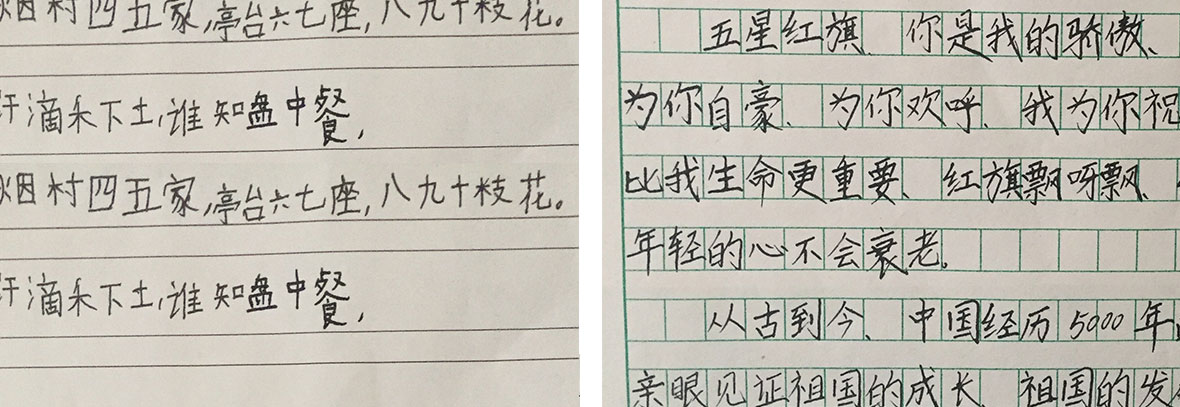 烟村四五家,亭台六七座,八九十枝花。
汗滴禾下土,谁知盘中餐,
烟村四五家,亭台六七座,八九十枝花。
汗滴禾下土,谁知盘中餐,
五星红旗、你是我的骄傲、
为你自豪、为你欢呼、我为你祝
比我生命更重要、红旗飘呀飘、
年轻的心不会衰老。
从古到今、中国经历5000年
亲眼见证祖国的成长、祖国的发